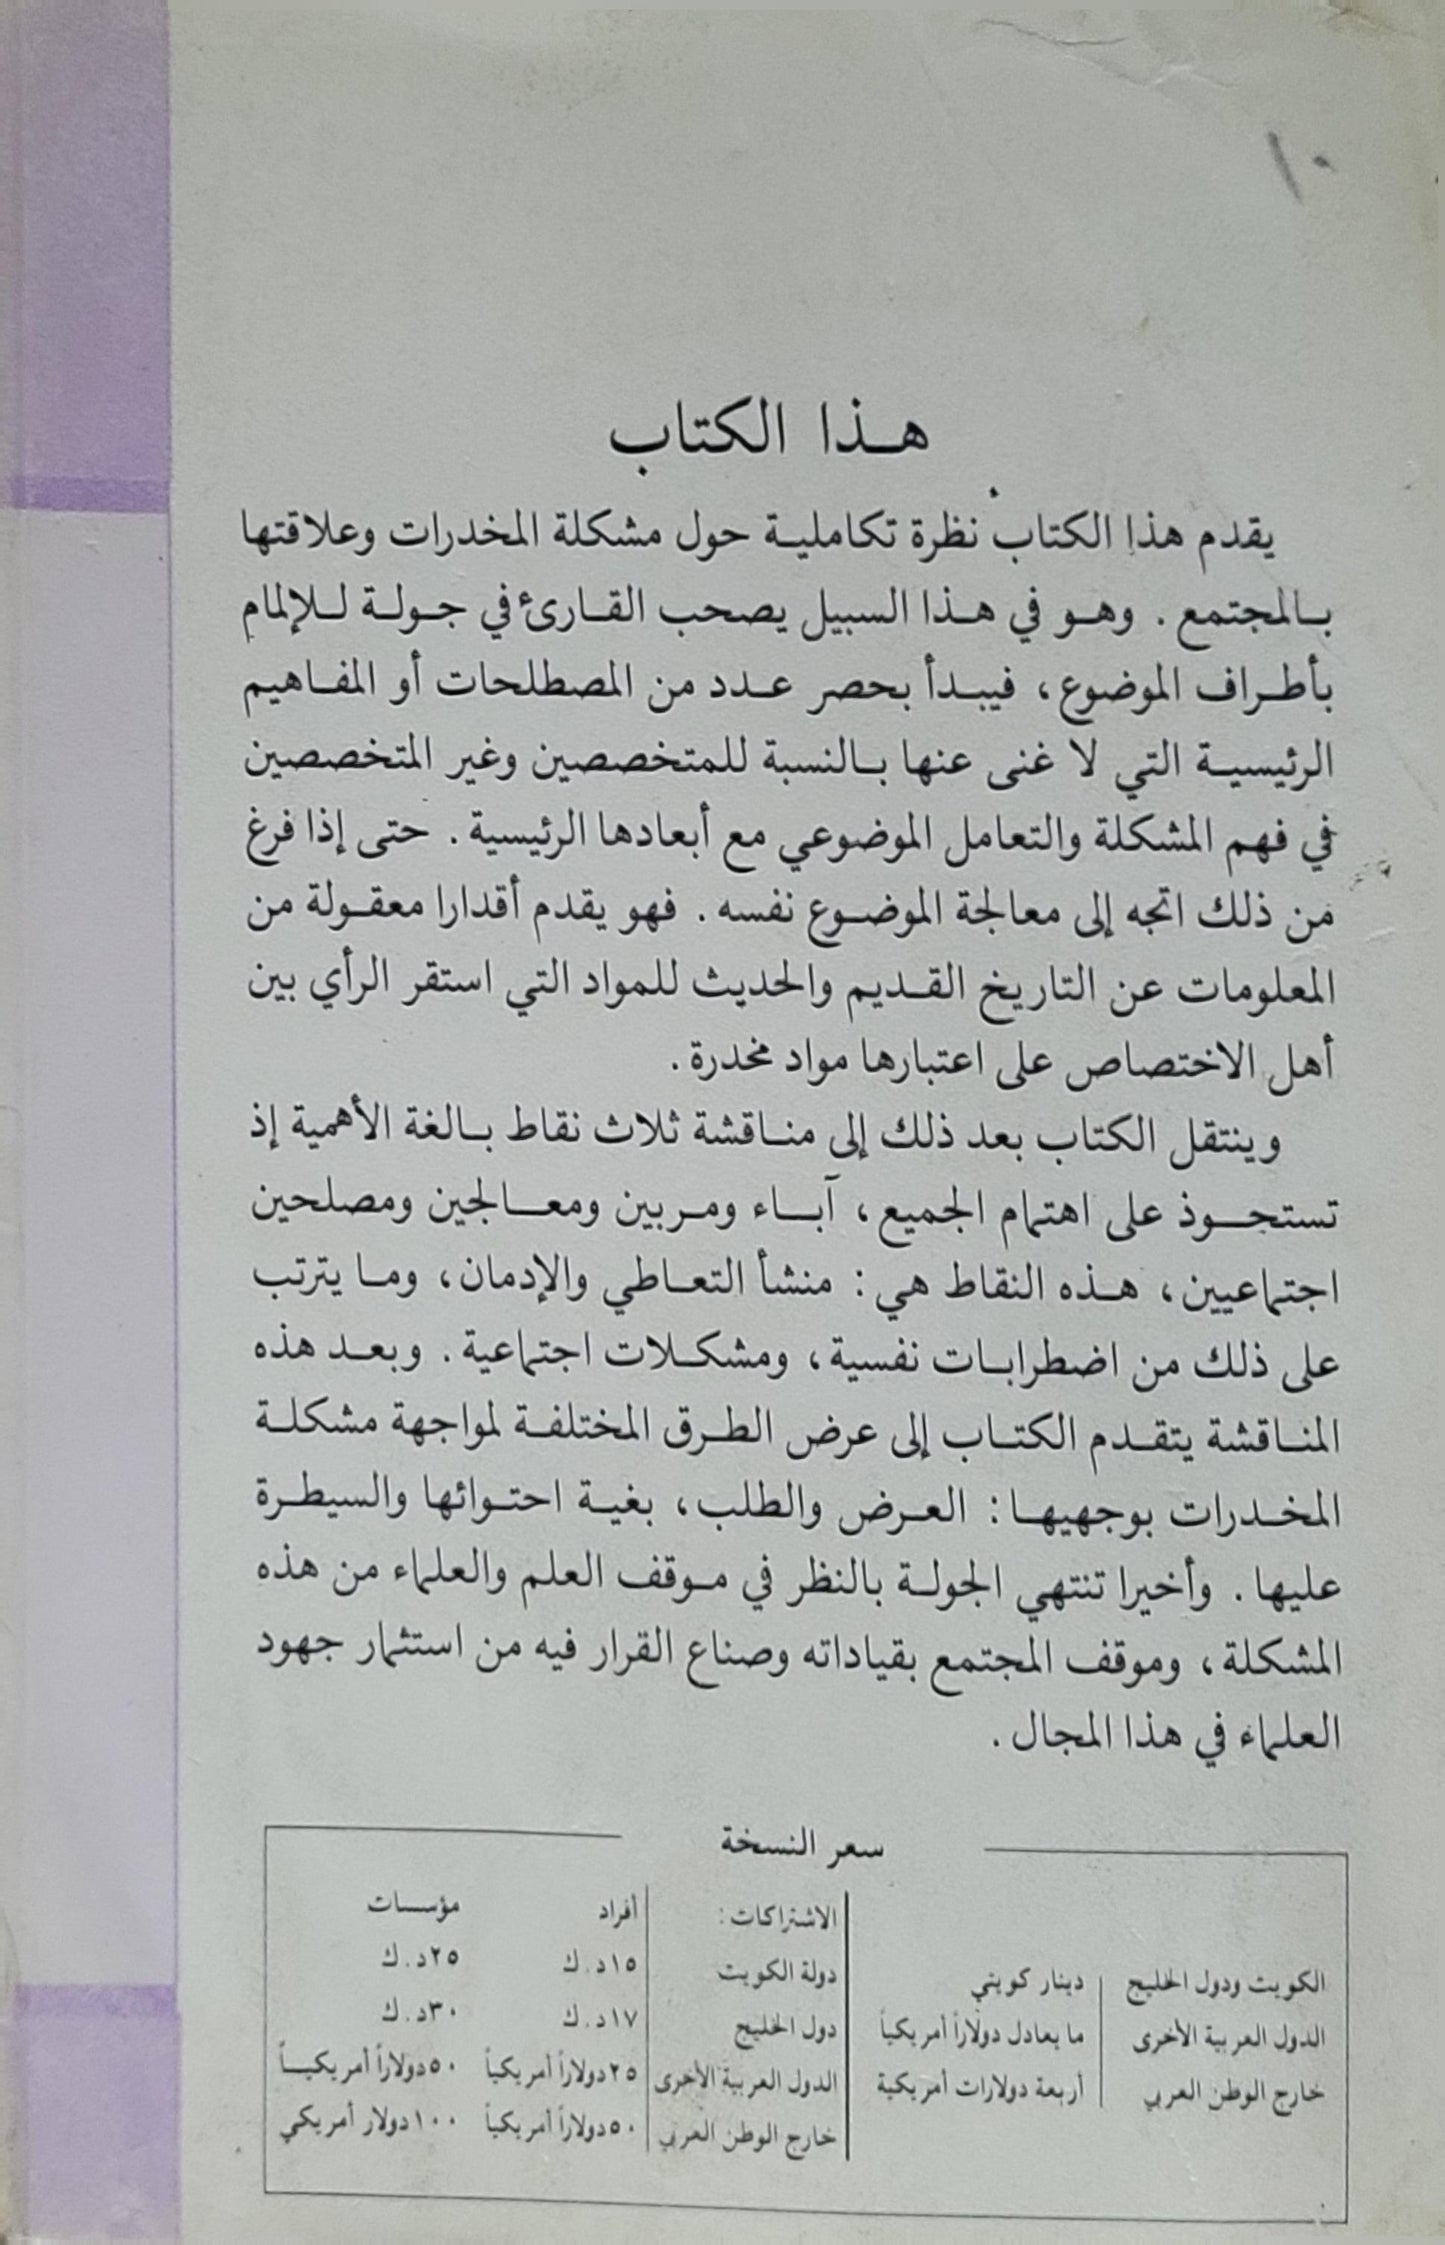 ١٠
هـذا الكتاب
يقدم هذا الكتاب نظرة تكاملية حول مشكلة المخدرات وعلاقتها
بالمجتمع . وهو في هذا السبيل يصحب القارئ في جولة للإلمام
بأطراف الموضوع، فيبدأ بحصر عدد من المصطلحات أو المفاهيم
الرئيسية التي لا غنى عنها بالنسبة للمتخصصين وغير المتخصصين
في فهم المشكلة والتعامل الموضوعي مع أبعادها الرئيسية . حتى إذا فرغ
من ذلك اتجه إلى معالجة الموضوع نفسه . فهو يقدم أقدارا معقولة من
المعلومات عن التاريخ القديم والحديث للمواد التي استقر الرأي بين
أهل الاختصاص على اعتبارها مواد مخدرة .
وينتقل الكتاب بعد ذلك إلى مناقشة ثلاث نقاط بالغة الأهمية إذ
تستحوذ على اهتمام الجميع، آباء ومربين ومعالجين ومصلحين
اجتماعيين، هذه النقاط هي : منشأ التعاطي والإدمان، وما يترتب
على ذلك من اضطرابات نفسية، ومشكلات اجتماعية . وبعد هذه
المناقشة يتقدم الكتاب إلى عرض الطرق المختلفة لمواجهة مشكلة
المخدرات بوجهيها : العرض والطلب، بغية احتوائها والسيطرة
عليها . وأخيرا تنتهي الجولة بالنظر في موقف العلم والعلماء من هذه
المشكلة، وموقف المجتمع بقياداته وصناع القرار فيه من استثمار جهود
العلماء في هذا المجال .
سعر النسخة
الكويت ودول الخليج دينار كويتي
الدول العربية الأخرى ما يعادل دولاراً أمريكياً
خارج الوطن العربي أربعة دولارات أمريكية
الاشتراكات : أفراد مؤسسات
دولة الكويت ١٥د.ك ٢٥د.ك
دول الخليج ١٧د.ك ٣٠د.ك
الدول العربية الأخرى ٢٥دولاراً أمريكياً ٥٠دولاراً أمريكياً
خارج الوطن العربي ٥٠دولاراً أمريكياً ١٠٠دولار أمريكي